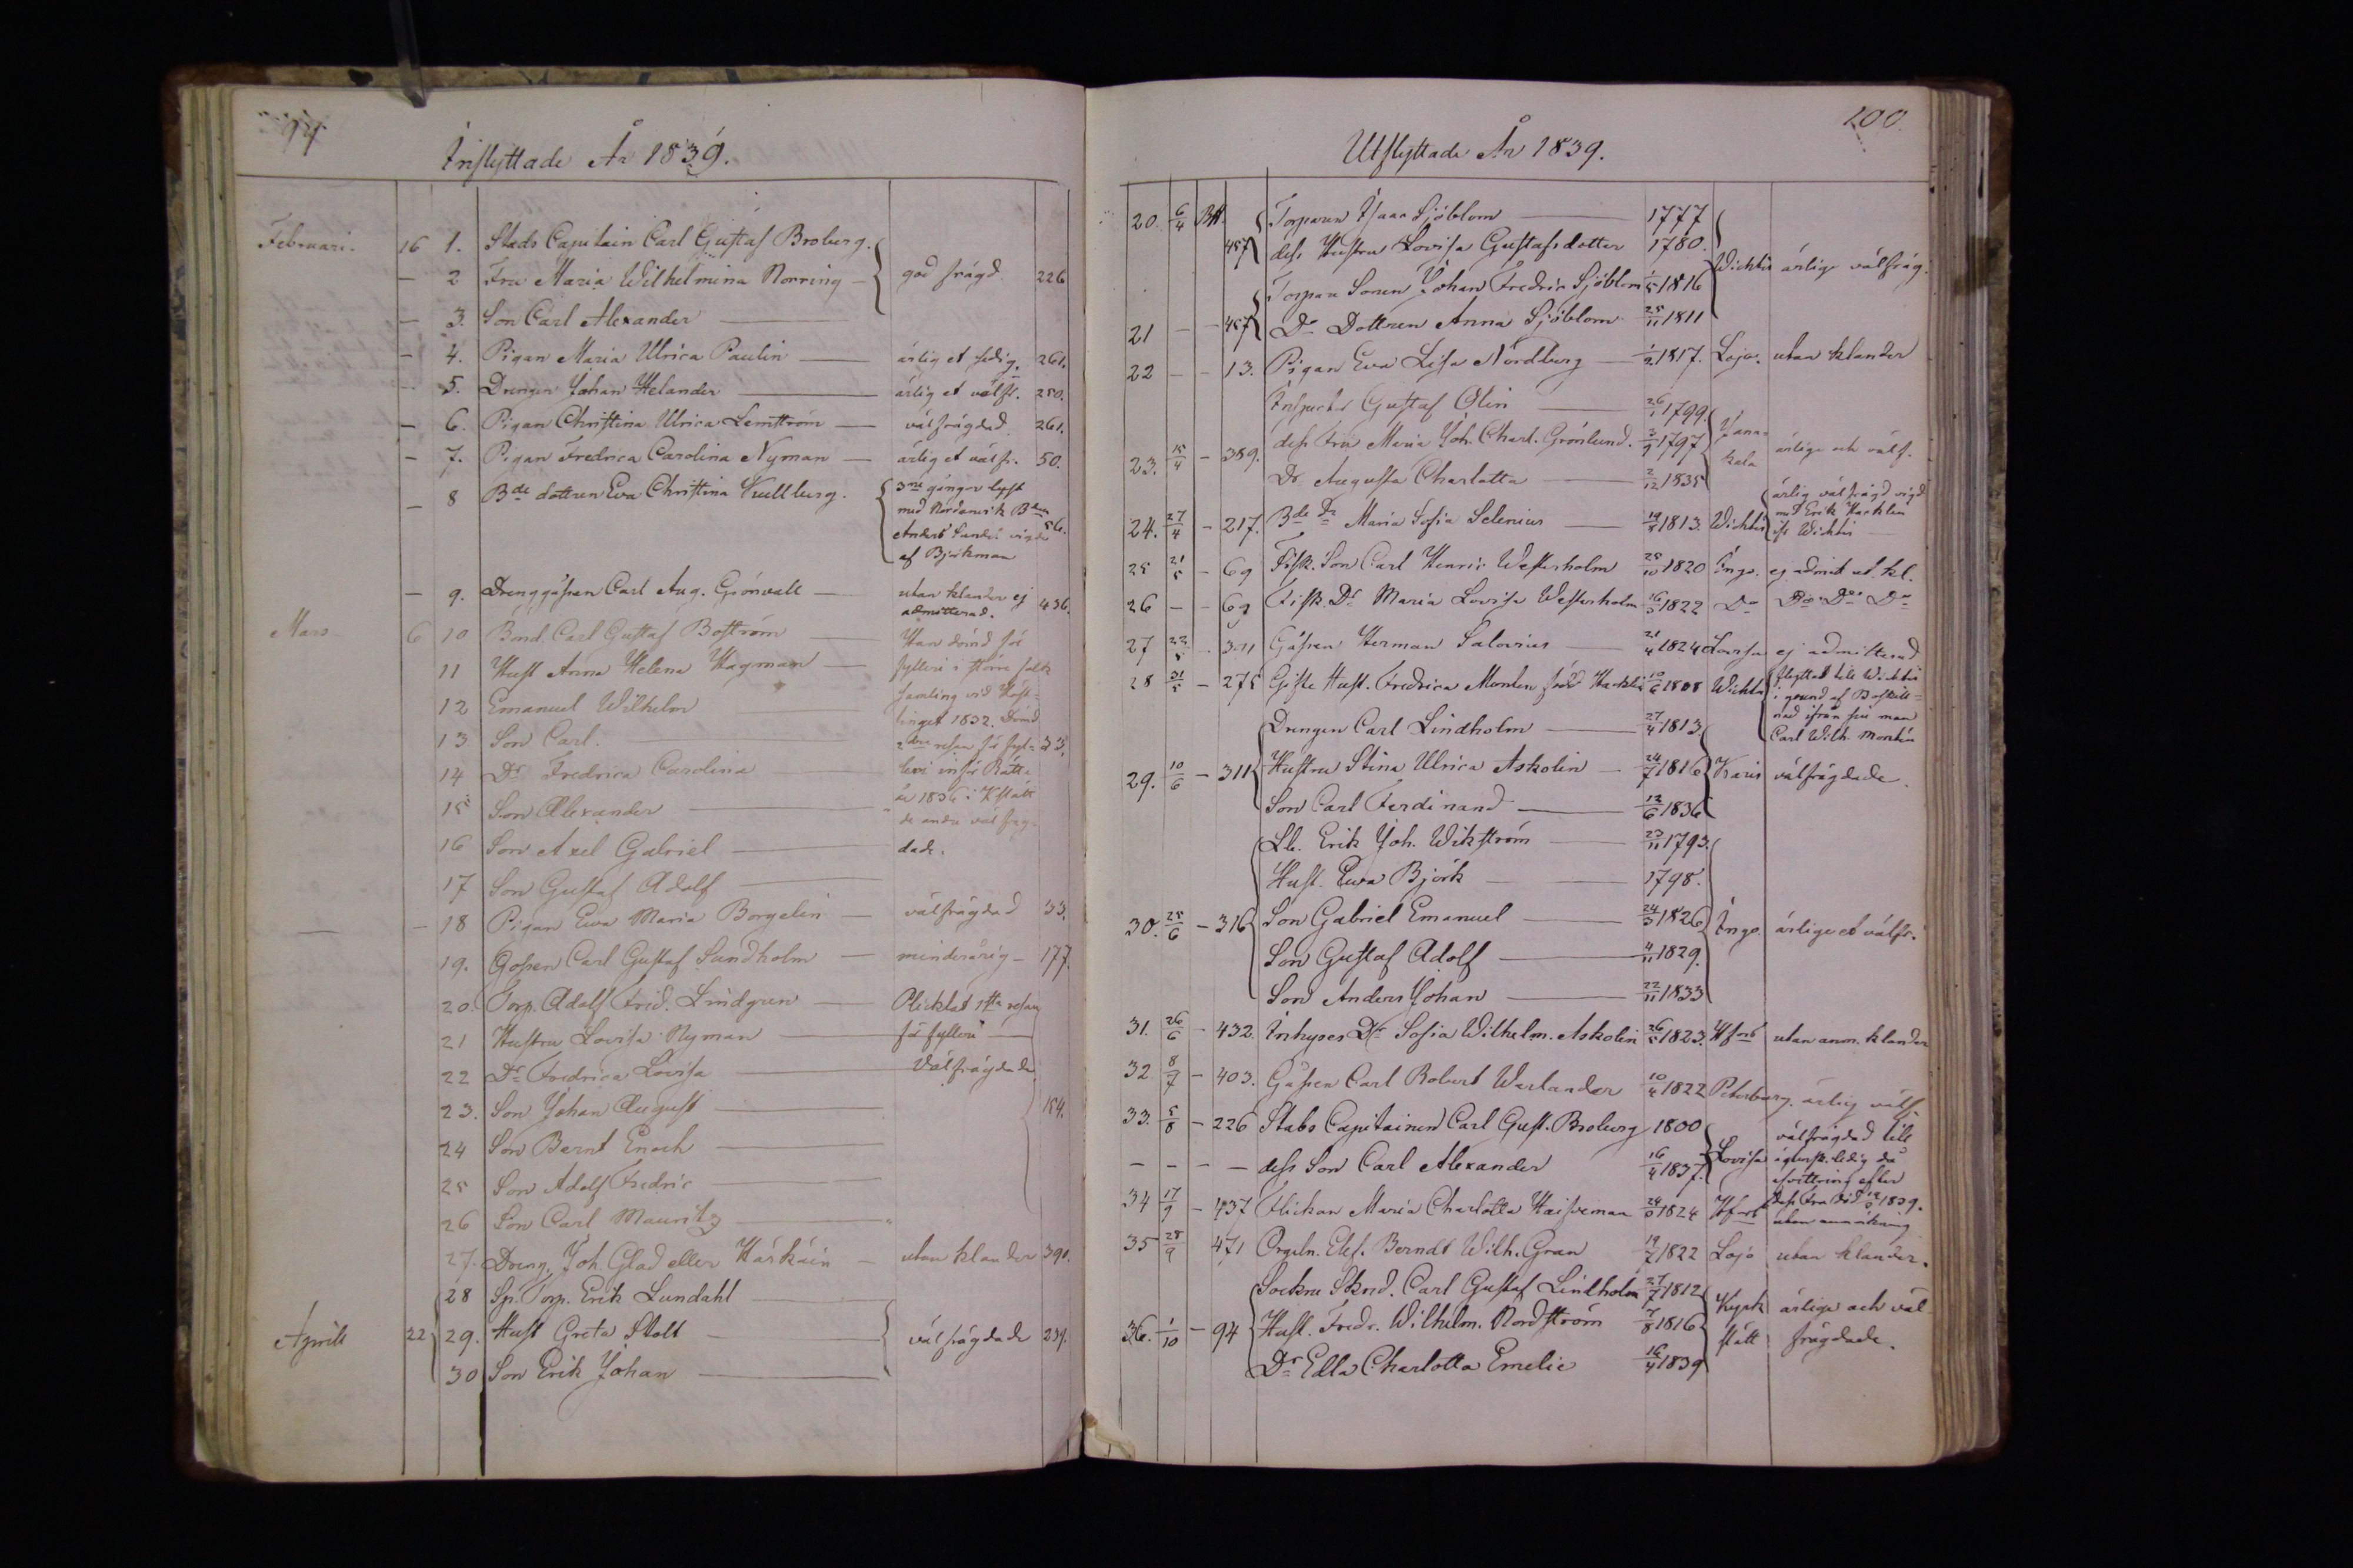 94
Inflyttade År 1839.
Februari. 16 1. Stads Capitain Carl Gustaf Broberg.
— 2 Fru Maria Wilhelmina Norring — god frägd. 226
— 3. Son Carl Alexander
— 4. Pigan Maria Ulrica Paulin — ärlig et sedig. 261.
— 5. Drengen Johan Helander — ärlig et välfr. 250.
— 6. Pigan Christina Ulrica Lemström — välfrägdad 261.
— 7. Pigan Fredrica Carolina Nyman — ärlig et välfr. 50.
— 8 Bde dottren Eva Christina Kullberg. 3ne gånger lyst
med Nordanvik Bden
Anders Sundi vigde 56.
af Björkman
— 9. Drenggåssen Carl Aug. Grönvall — utan klander ej
admitterad. 436.
Mars 6 10 Bond. Carl Gustaf Boström — Han dömd för
11 Hust Anna Helena Hagman — fylleri i större folk
samling vid Höst-
12 Emanuel Wilhelm
tinget 1832. Dömd
13 Son Carl.
2dra resan för fyl- 33.
14 Dr Fredrica Carolina
leri inför Rätt.
år 1836 i Kstätt
15 Son Alexander
de andra väl fräg-
16 Son Axel Gabriel — dade.
17 Son Gustaf Adolf
— 18 Pigan Ewa Maria Borgelin — välfrägdad 33.
19. Gossen Carl Gustaf Sundholm — minderårig — 177.
20. Torp. Adolf Frid. Lindgren — Plicktat 1sta resan
21 Hustru Lovisa Nyman — för fylleri
22 Dr Fredrica Lovisa — Välfrägdade
23. Son Johan August 154.
24 Son Bernt Enoch
25 Son Adolf Fredric
26 Son Carl Mauritz
27. Dreng. Joh. Glad eller Härkäin — utan klander 390.
28 Sp. Torp. Erik Lundahl
Aprill 22 29. Hust Greta Stolt — välfrägdade 239.
30 Son Erik Johan
100.
Utflyttade År 1839.
20. 6/4 Btt. Torparen Isaac Sjöblom — 1777
457 dess Hustru Lovisa Gustafsdotter 1780.
Wichtis ärlige välfräg.
Torpare Sonen Johan Fredric Sjöblom 1/5 1816
21 — — 457 Do Dottren Anna Sjöblom 25/11 1811
22 — — 13. Pigan Eva Lisa Nordberg — 1/2 1817. Lojo. utan klander
Inspector Gustaf Olin — 26/1 1799.
dess Fru Maria Joh. Charl. Grönlund. 3/9 1797 Jana-
kala ärlige och välf.
23. 15/4 — 389.
Dr Augusta Charlotta — 2/12 1835
ärlig välfrägd vigd
24. 27/4 — 217. Bde Dr Maria Sofia Selenius — 19/8 1813. Wichtis med Erik Hacklin
ifr Wichtis
25 21/5 — 69 Fisk. Son Carl Henric Westerholm 25/10 1820 Ingo. ej admit et. kl.
26 — — 69 Fisk. Dr Maria Lovisa Westerholm 16/3 1822 Do Do Do Do
27 22/5 — 311 Gåssen Herman Salovius — 21/4 1824 Lovisa ej admitterad
28 31/5 — 275 Gifte Hust. Fredrica Montin född Hacklin 10/6 1808 Wichtis flyttat till Wichtis
i grund af Boskill-
nad ifrån sin man
Carl Wilh. Montin
Drengen Carl Lindholm — 27/4 1813
29. 10/6 — 311 Hustru Stina Ulrica Askolin — 24/7 1816 Karis välfrägdade.
Son Carl Ferdinand — 12/6 1836
Lb. Erik Joh. Wikström — 23/11 1793.
Hust. Ewa Björk — 1798.
30. 25/6 — 316 Son Gabriel Emanuel — 24/3 1826 Ingo. ärlige et välfr.
Son Gustaf Adolf — 4/11 1829.
Son Anders Johan — 22/11 1833
31. 26/6 — 432. Inhyses Dr Sofia Wilhelm. Askolin 26/5 1823. Hfors utan anm. klander
32 8/7 — 403. Gåssen Carl Robert Warlander 10/4 1822 Petersburg. ärlig välf.
33. 5/8 — 226 Stabs Capitainen Carl Gust. Broberg 1800
Lovisa välfrägdad till
— — — — dess Son Carl Alexander 16/4 1837. ägtensk. ledig då
afvittring efter
34 17/9 — 437 Flickan Maria Charlotta Kaiseman 1824 Hfors dess Fru död 1839.
utan anmärkning
35 28/9 471 Orgeln. Elef. Berndt Wilh. Gran 19/7 1822 Lojo utan klander.
Sockne Skrd. Carl Gustaf Lindholm 27/7 1812
36. 1/10 — 94 Hust. Fredr. Wilhelm. Nordström 7/8 1816 Kyrk ärlige och väl-
slätt frägdade.
Dr Edla Charlotta Emelie 16/4 1839